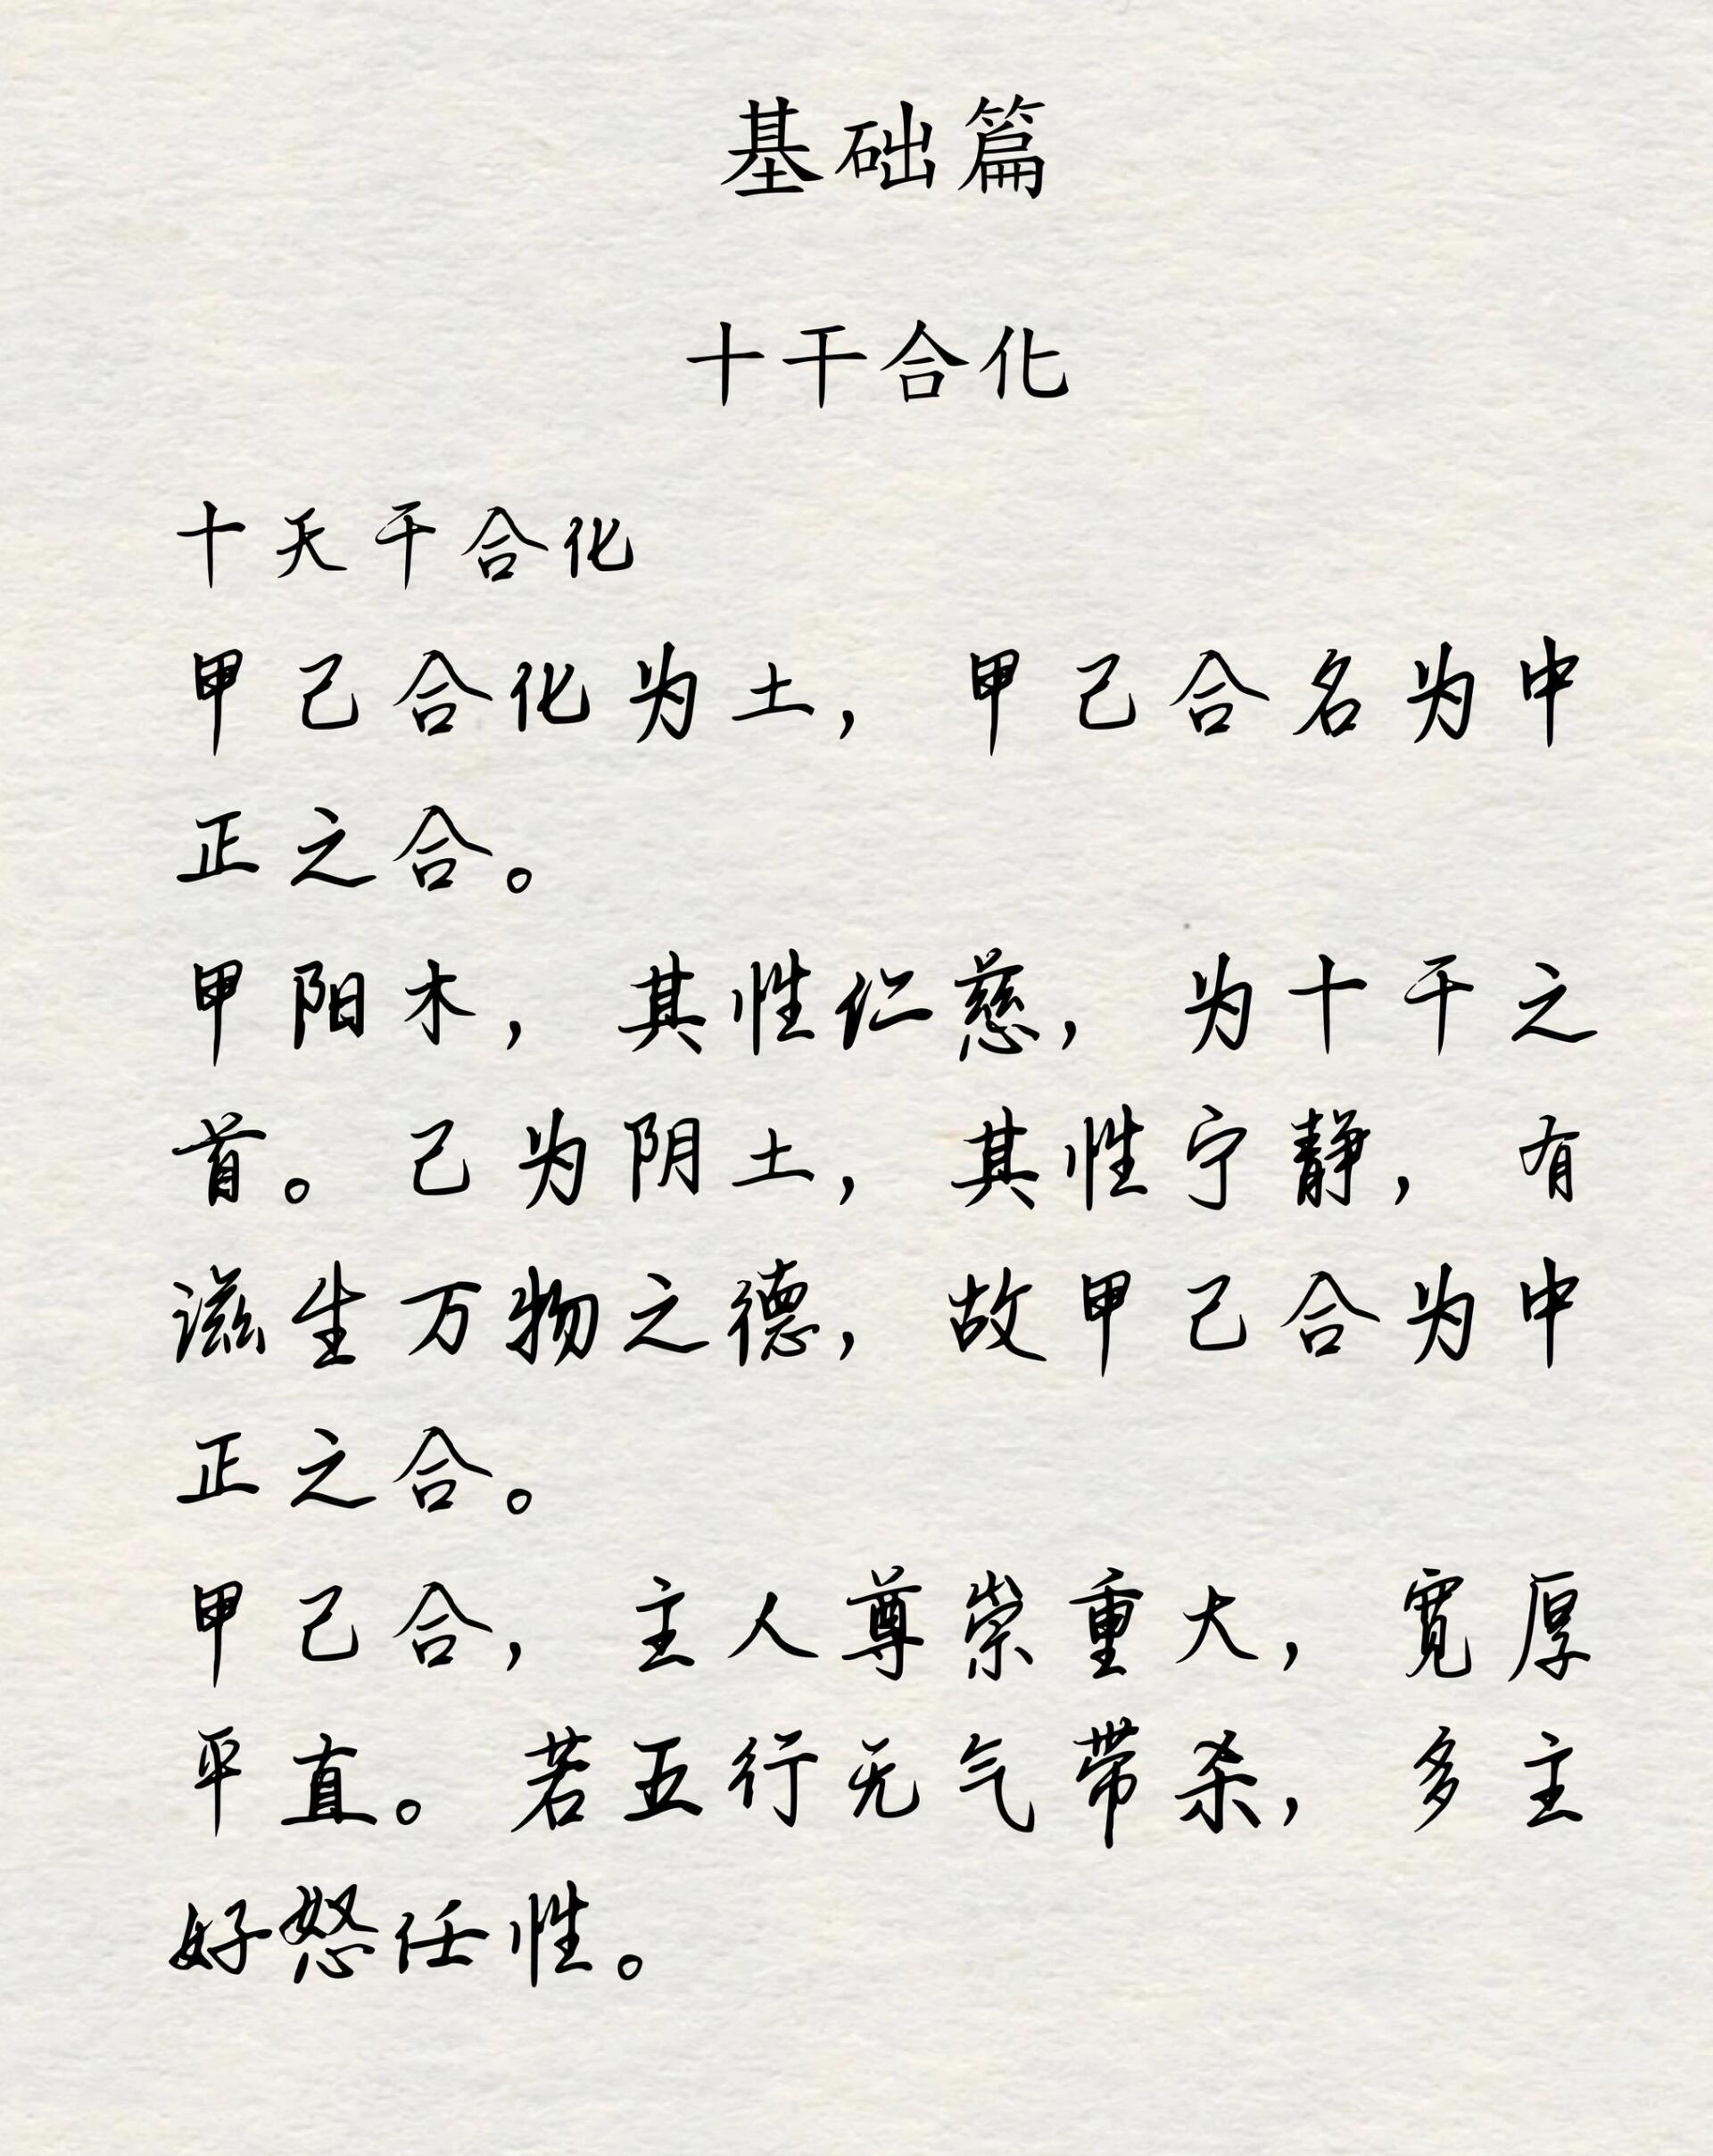 基础篇
十干合化
十天干合化
甲己合化为土，甲己合名为中
正之合。
甲阳木，其性仁慈，为十干之
首。己为阴土，其性宁静，有
滋生万物之德，故甲己合为中
正之合。
甲己合，主人尊崇重大，宽厚
平直。若五行无气带杀，多主
好怒任性。